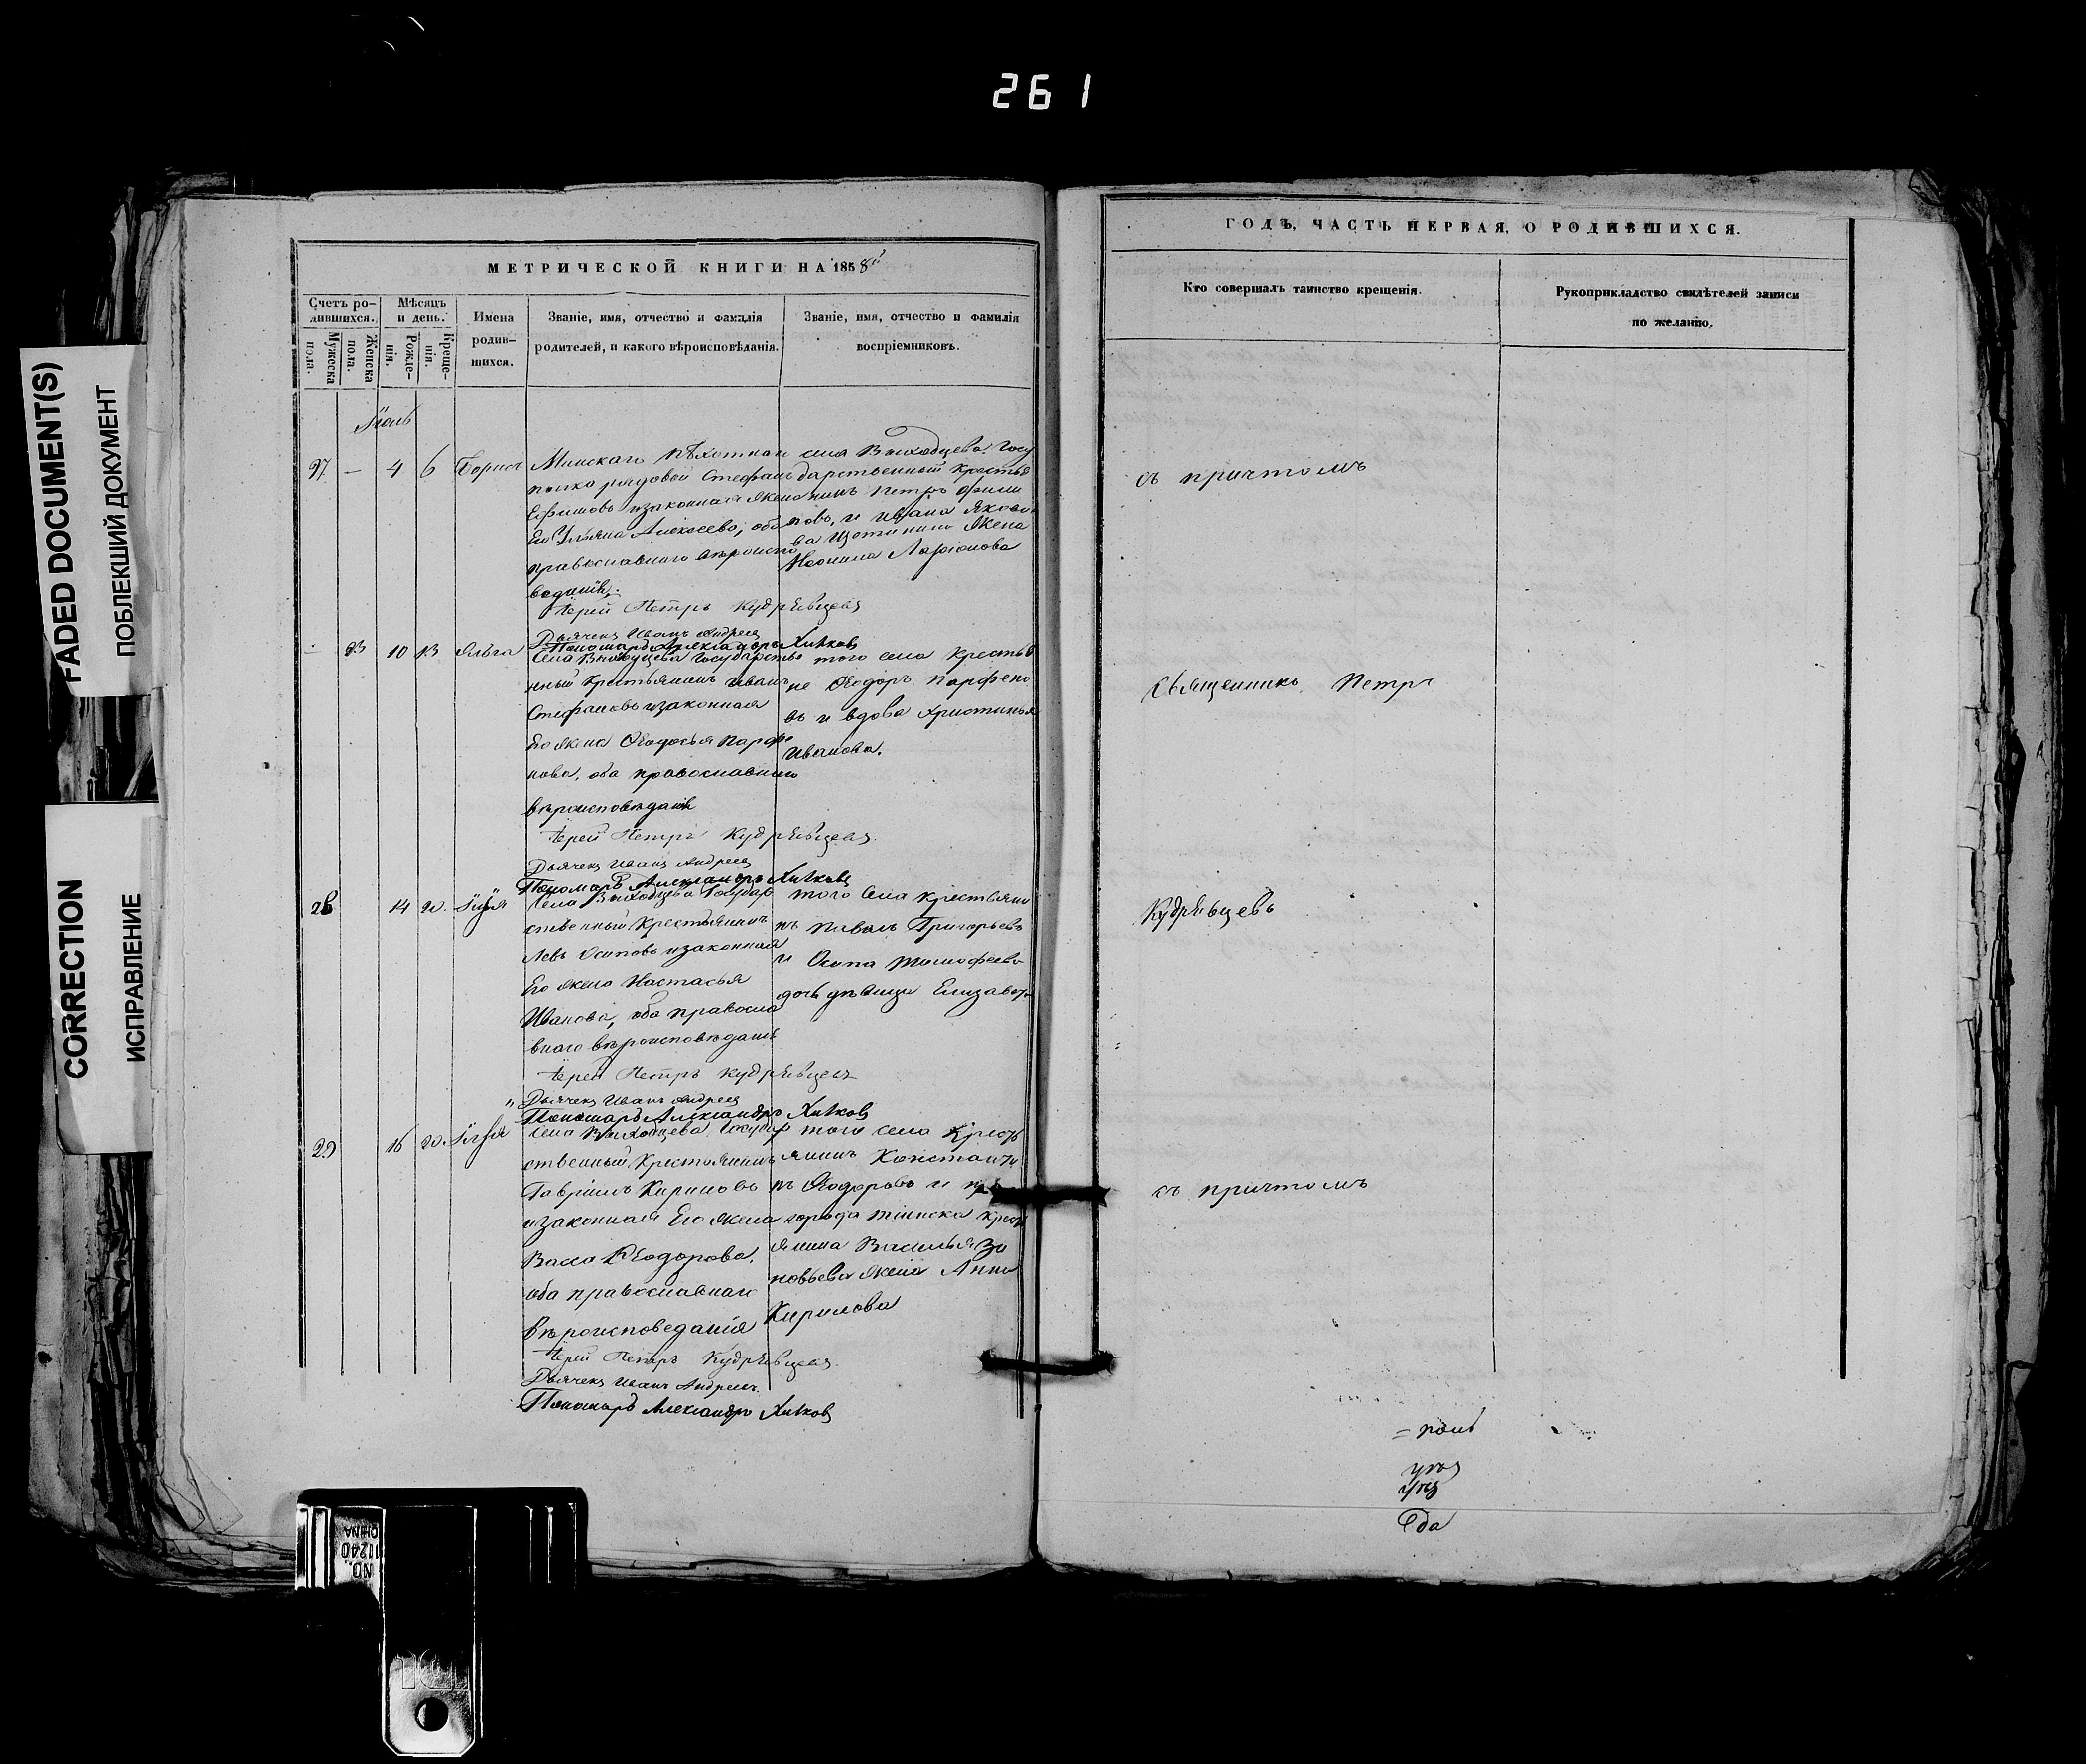 261
FADED DOCUMENT(S)
ПОБЛЕКШИЙ ДОКУМЕНТ
CORRECTION
ИСПРАВЛЕНИЕ
МЕТРИЧЕСКОЙ КНИГИ НА 1858й
Счетъ родившихся.
Мужеска пола.
Женска пола.
Мѣсяцъ и день.
Рожденія.
Крещенія.
Имена родившихся.
Званіе, имя, отчество и фамилія
родителей, и какого вѣроисповѣданія.
Званіе, имя, отчество и фамилія
воспріемниковъ.
Іюль
27 — 4 6 Борисъ
Минскаго пѣхотнаго
полка рядовой Стефанъ
Ефимовъ и законная жена
его Ульяна Алексеева, оба
православнаго вѣроиспо
веданія.
села Выходцева Госу
дарственный крестья
нинъ Петръ Фили
повъ, и Ивана Яковле
ва Щетинина жена
Неонила Ларіонова
Іерей Петръ Кудрявцевъ
Дьячекъ Иванъ Андреевъ
Пономарь Александръ Хитковъ
— 23 10 13 Ольга
Села Выходцева Государстве
нный Крестьянинъ Иванъ
Стефановъ и законная
его жена Ѳеодосья Парфе
нова, оба православнаго
вѣроисповѣданія
того села крестья
не Ѳеодоръ Парфено
въ и вдова Христинья
Иванова.
Іерей Петръ Кудрявцевъ
Дьячекъ Иванъ Андреевъ
Пономарь Александръ Хитковъ
28 14 20. Илья
Села Выходцева Государ
ственный Крестьянинъ
Левъ Осиповъ и законная
Его жена Настасья
Иванова, оба правосла
внаго вѣроисповѣданія
того села крестьяни
нъ Павелъ Григорьевъ
и Осипа Тимофеева
дочь дѣвица Елизавета
Іерей Петръ Кудрявцевъ
Дьячекъ Иванъ Андреевъ
Пономарь Александръ Хитковъ
29 16 20. Илья
Села Выходцева Государ
ственный Крестьянинъ
Гавріилъ Кириловъ
и законная Его жена
Васса Ѳеодорова,
оба православнаго
вѣроисповеданія
того села Кресть
янинъ Константи
нъ Ѳеодоровъ и
города крест
янина Василья Зи
новьева жена Анна
Кирилова
Іерей Петръ Кудрявцевъ
Дьячекъ Иванъ Андреевъ
Пономарь Александръ Хитковъ
ГОДЪ, ЧАСТЬ ПЕРВАЯ, О РОДИВШИХСЯ.
Кто совершалъ таинство крещенія.
Рукоприкладство свидѣтелей записи
по желанію.
съ причтомъ
Священникъ Петръ
Кудрявцевъ
съ причтомъ
NO. 11240
CHINA